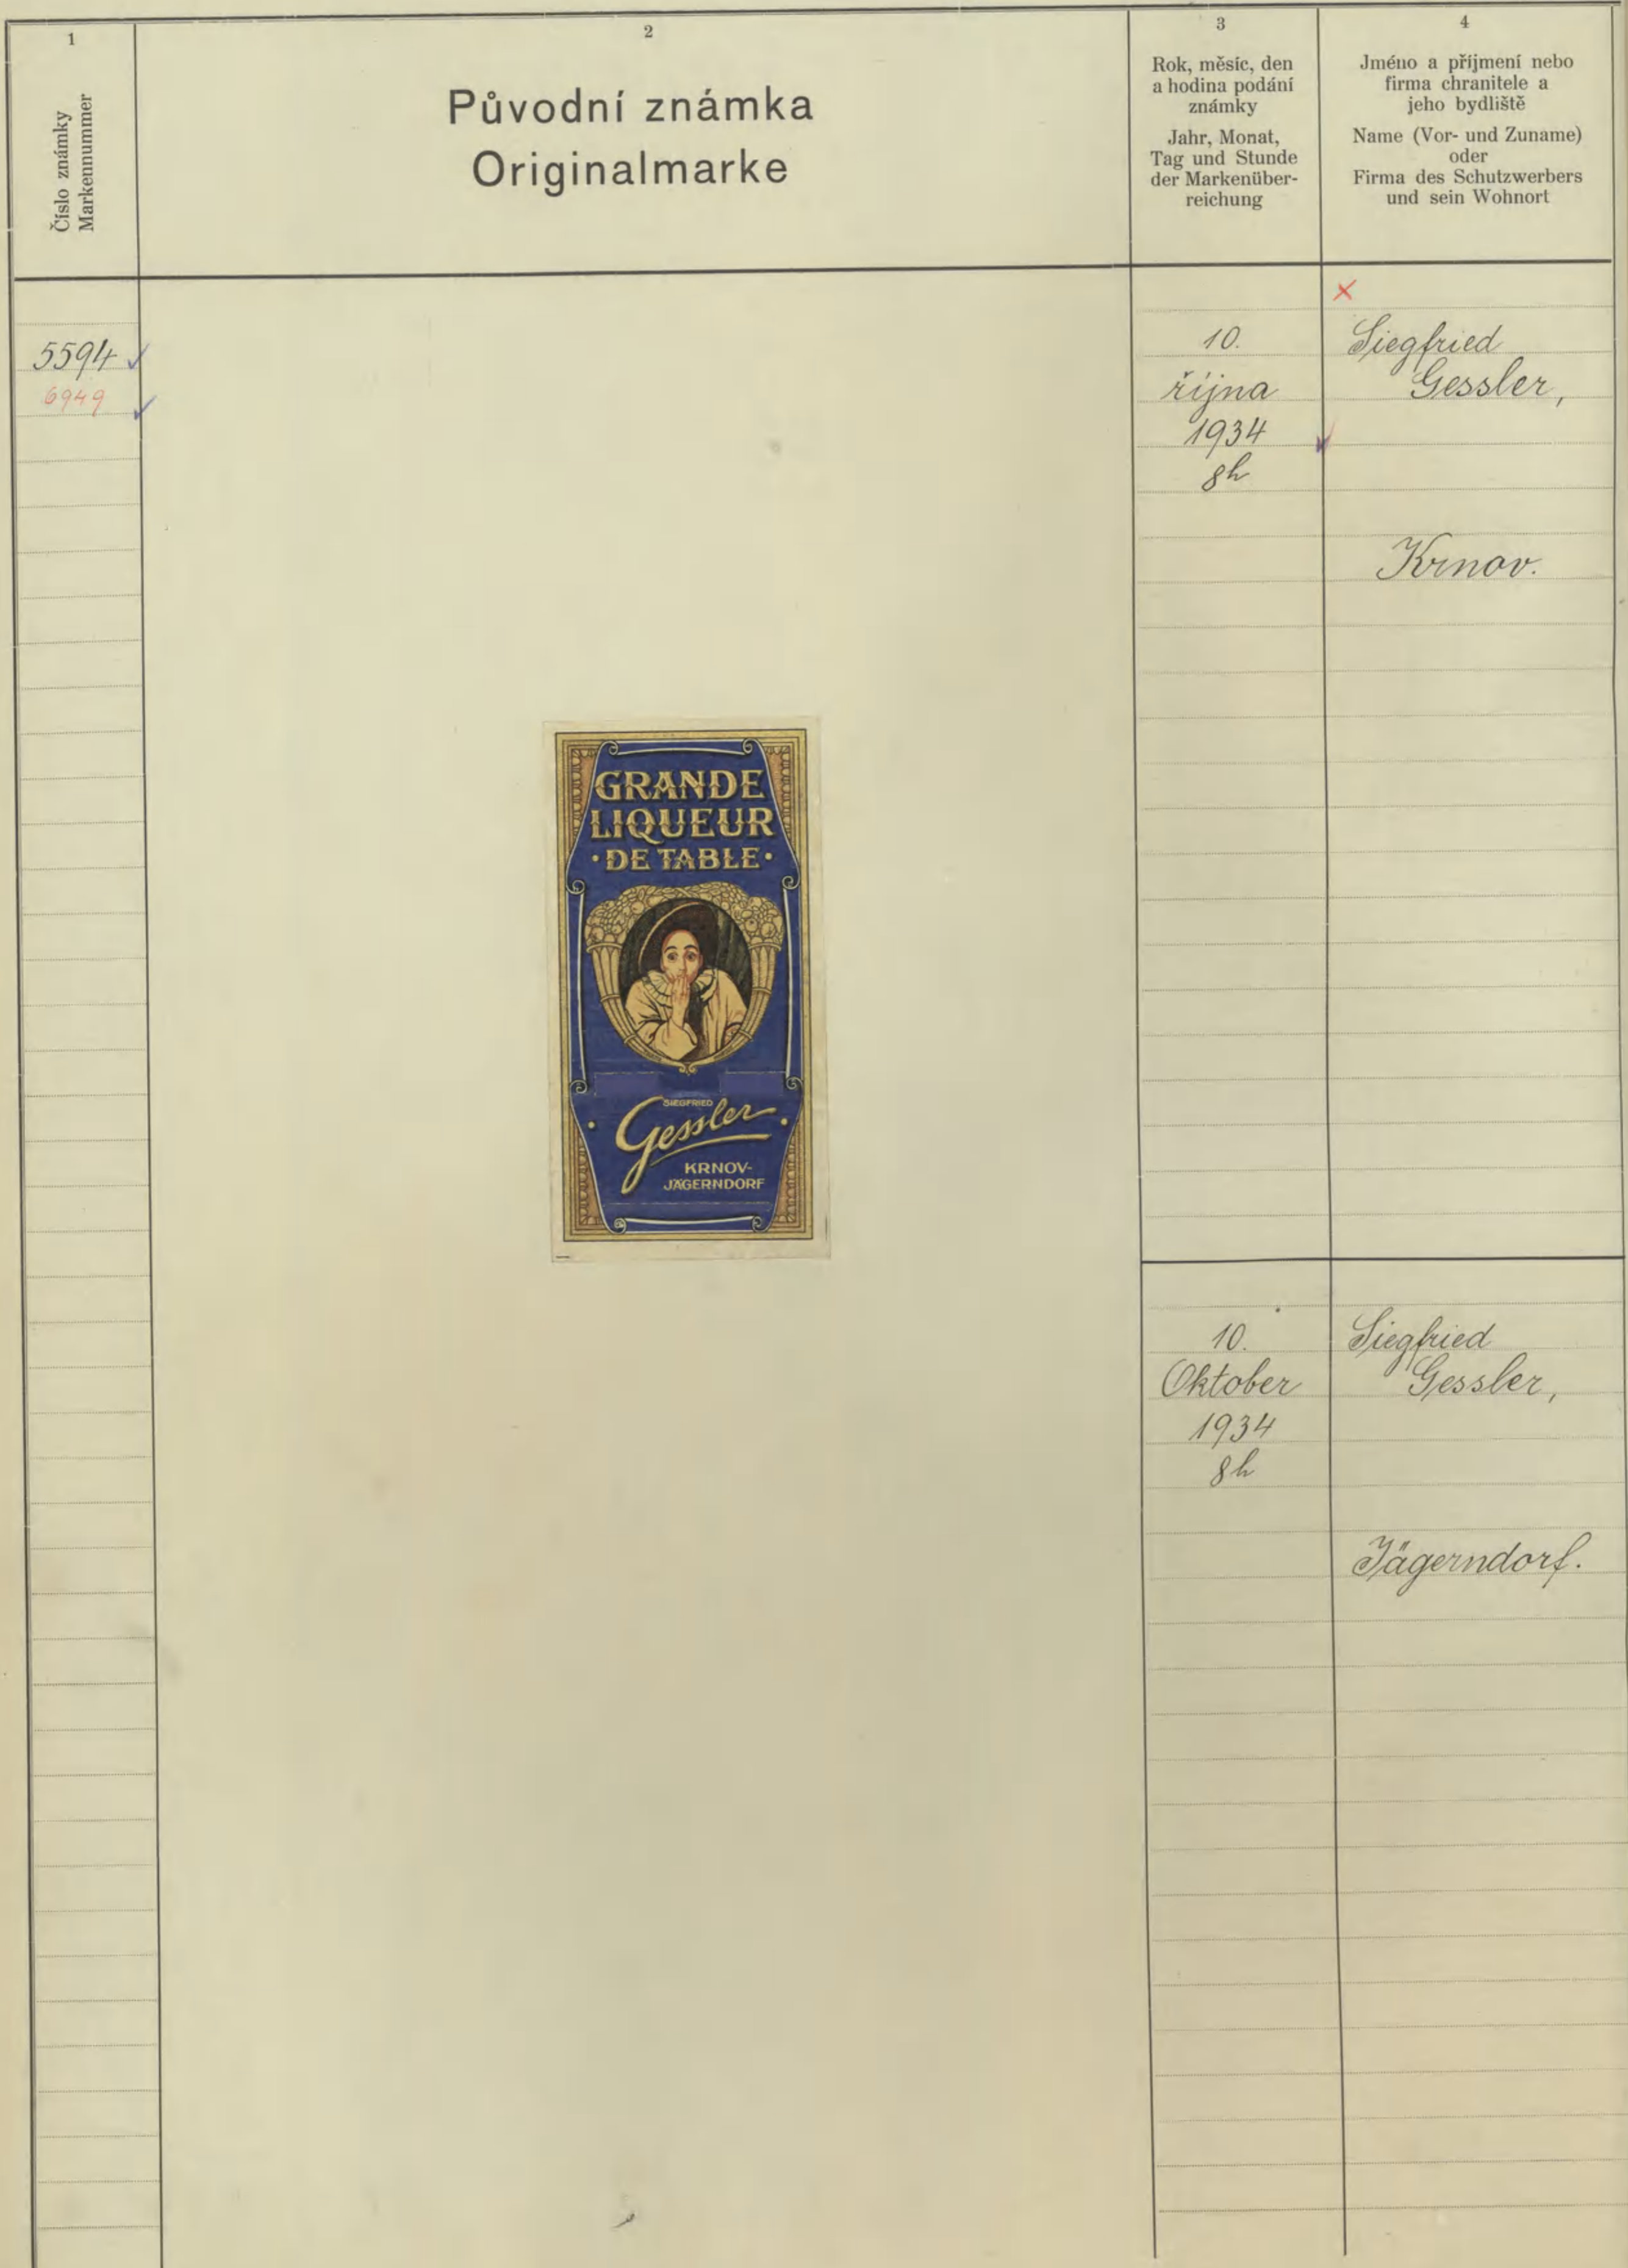 1
Číslo známky
Markennummer
2
Původní známka
Originalmarke
3
Rok, měsíc, den
a hodina podání
známky
Jahr, Monat,
Tag und Stunde
der Markenüber-
reichung
4
Jméno a příjmení nebo
firma chranitele a
jeho bydliště
Name (Vor- und Zuname)
oder
Firma des Schutzwerbers
und sein Wohnort
5594
6949
10.
října
1934
8h
Siegfried
Gessler,
Krnov.
GRANDE
LIQUEUR
· DE TABLE ·
SIEGFRIED
Gessler
KRNOV-
JÄGERNDORF
10.
Oktober
1934
8h
Siegfried
Gessler,
Jägerndorf.